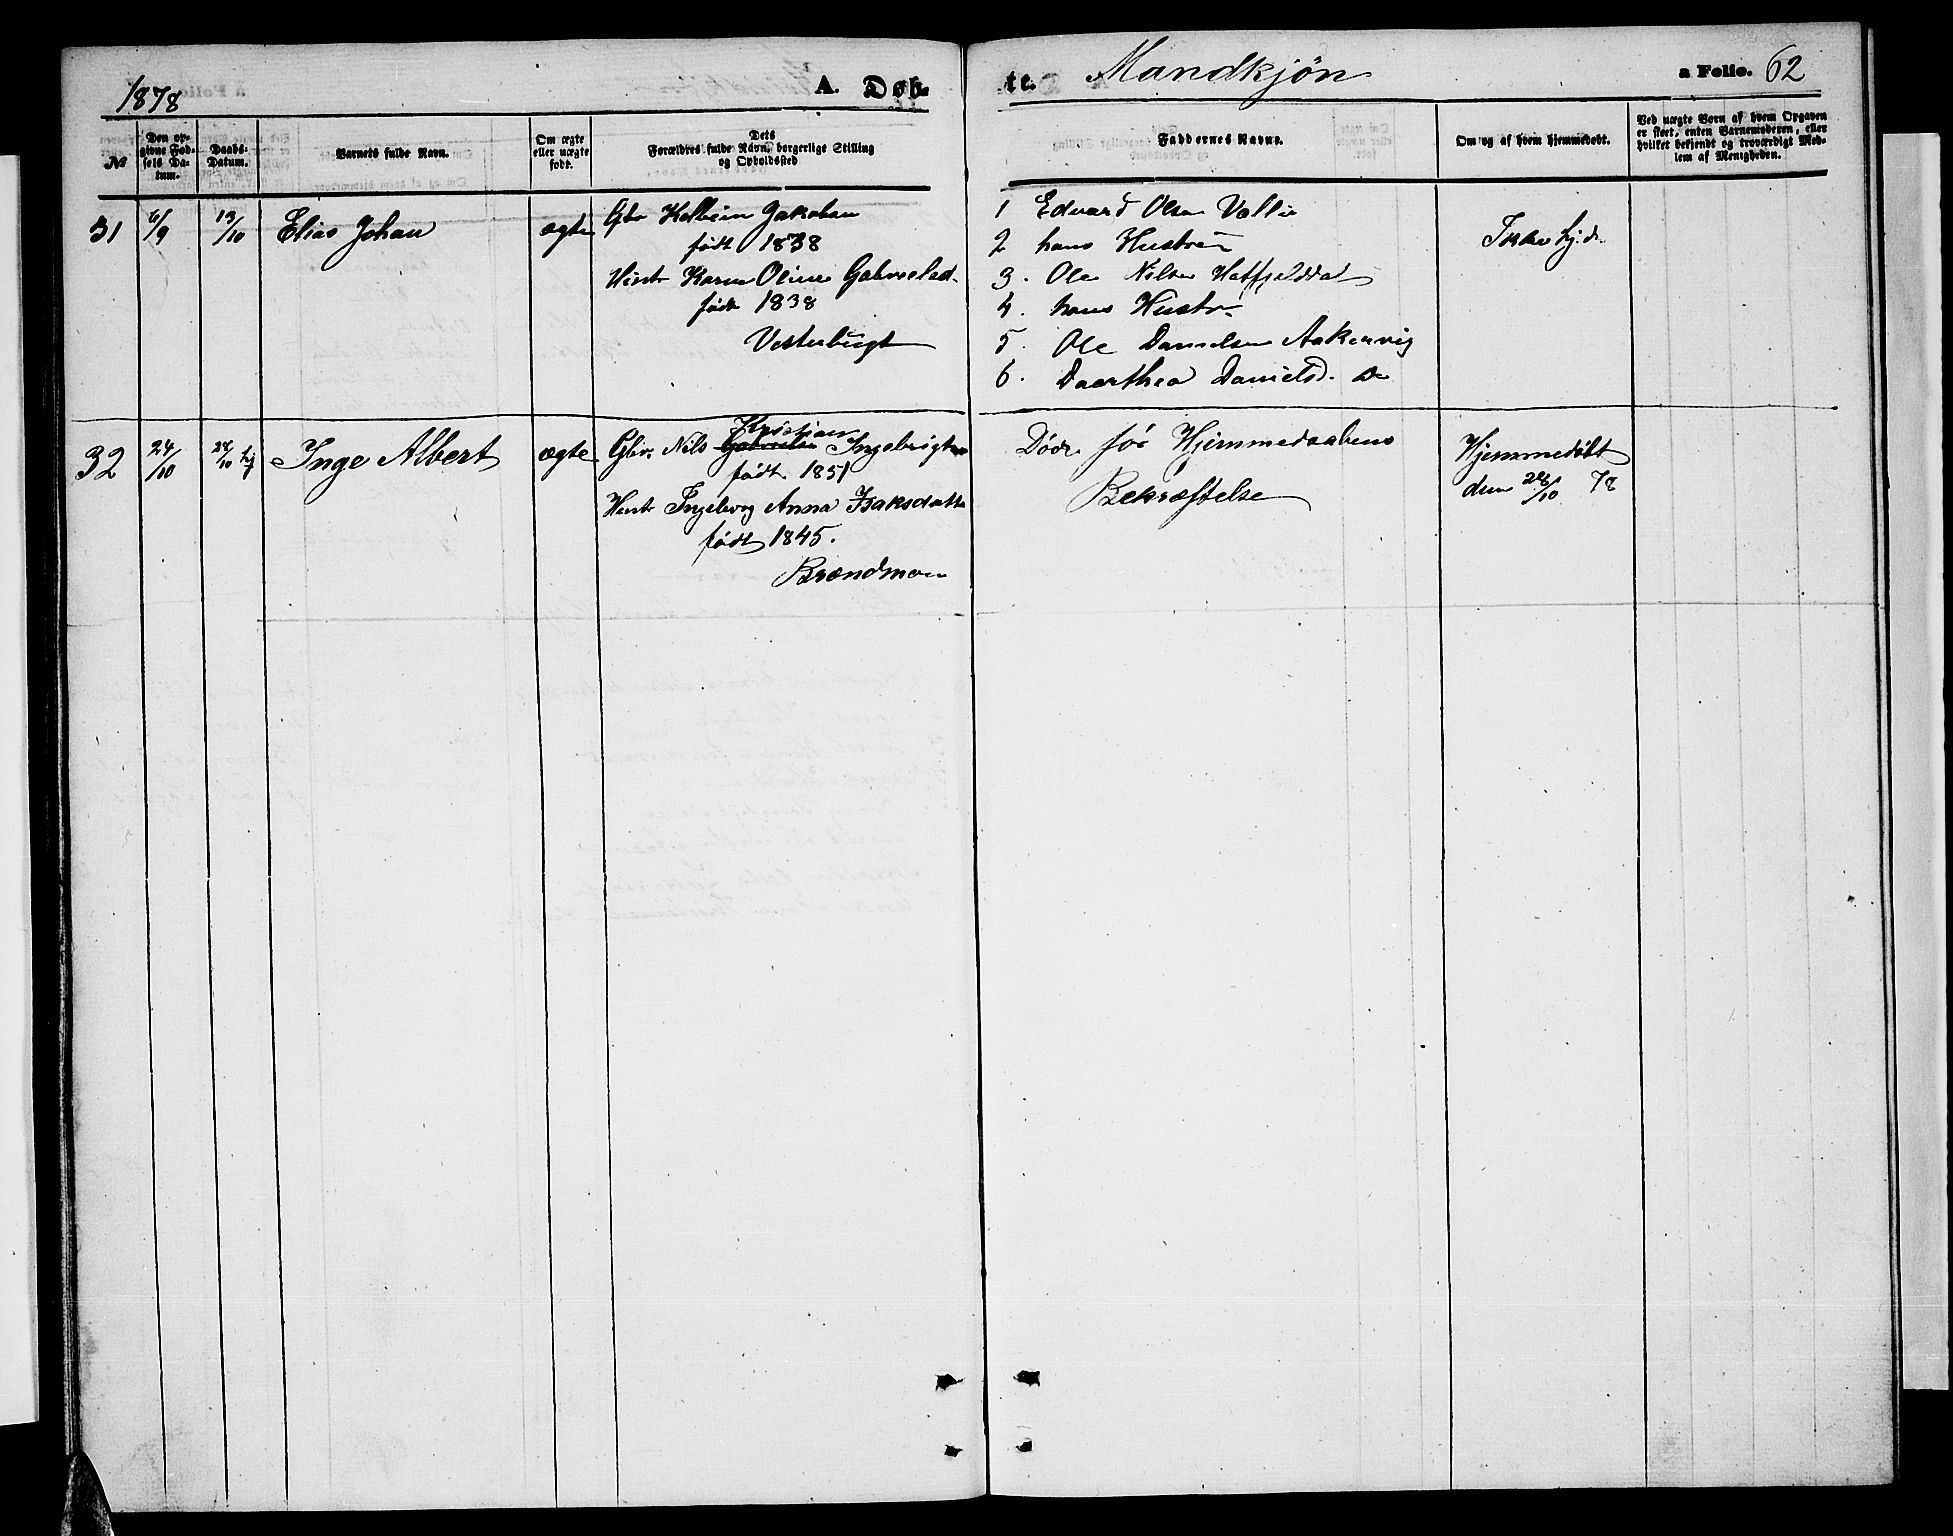 1878
A. Døb-
te.
Mandkjön
a Folio. 62
№
Den op-
givne Fød-
sels Da-
tum.
Daabs-
Datum.
Barnets fulde Navn.
Om ægte
eller uægte
født.
Dets
Forældres fulde Navn, borgerlige Stilling
og Opholdssted
Faddernes Navne.
Om og af hvem hjemmedøbt.
Ved uægte Børn af hvem Opgaven
er skeet, enten Barnemoderen, eller
hvilket bekjendt og troværdigt Med-
lem af Menigheden.
31
6/9
13/10
Elias Johan
ægte
Gbr Kolbein Jakobsen
født 1838
Hustr Karen Oline Gabrielsd.
født 1838
Vesterbugt
1 Edvard Olsen Vallie
2 hans Hustru
3. Ole Nilsen Hatfjelddal
4. hans Hustr
5. Ole Danielsen Aakervig
6. Daarthea Danielsd. Do
Ikke hj.d.
32
24/10
28/10 hj
Inge Albert
ægte
Kristian
Gbr. Nils Gabrielsen Ingebrigtsen
født 1851
Hustr Ingeborg Anna Isaksdatter
født 1845.
Brændmoen
Døde før Hjemmedaabens
Bekræftelse
Hjemmedøbt
den 28/10 78